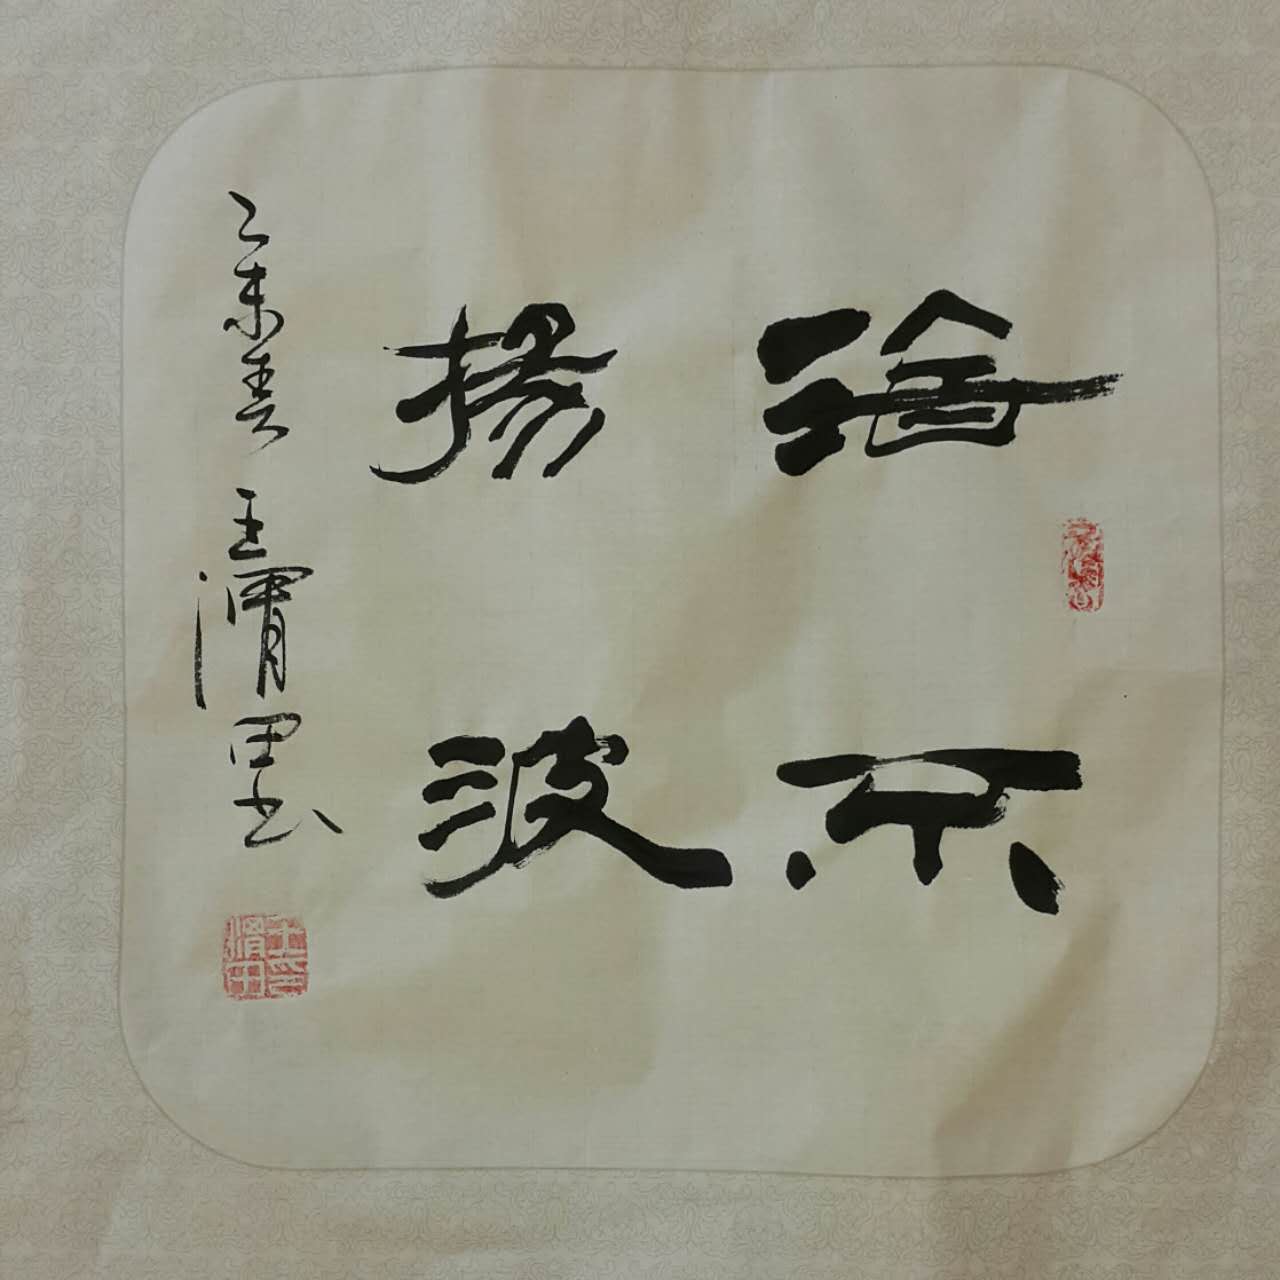 海不
揚波
乙未春 王渭田书
王渭田印